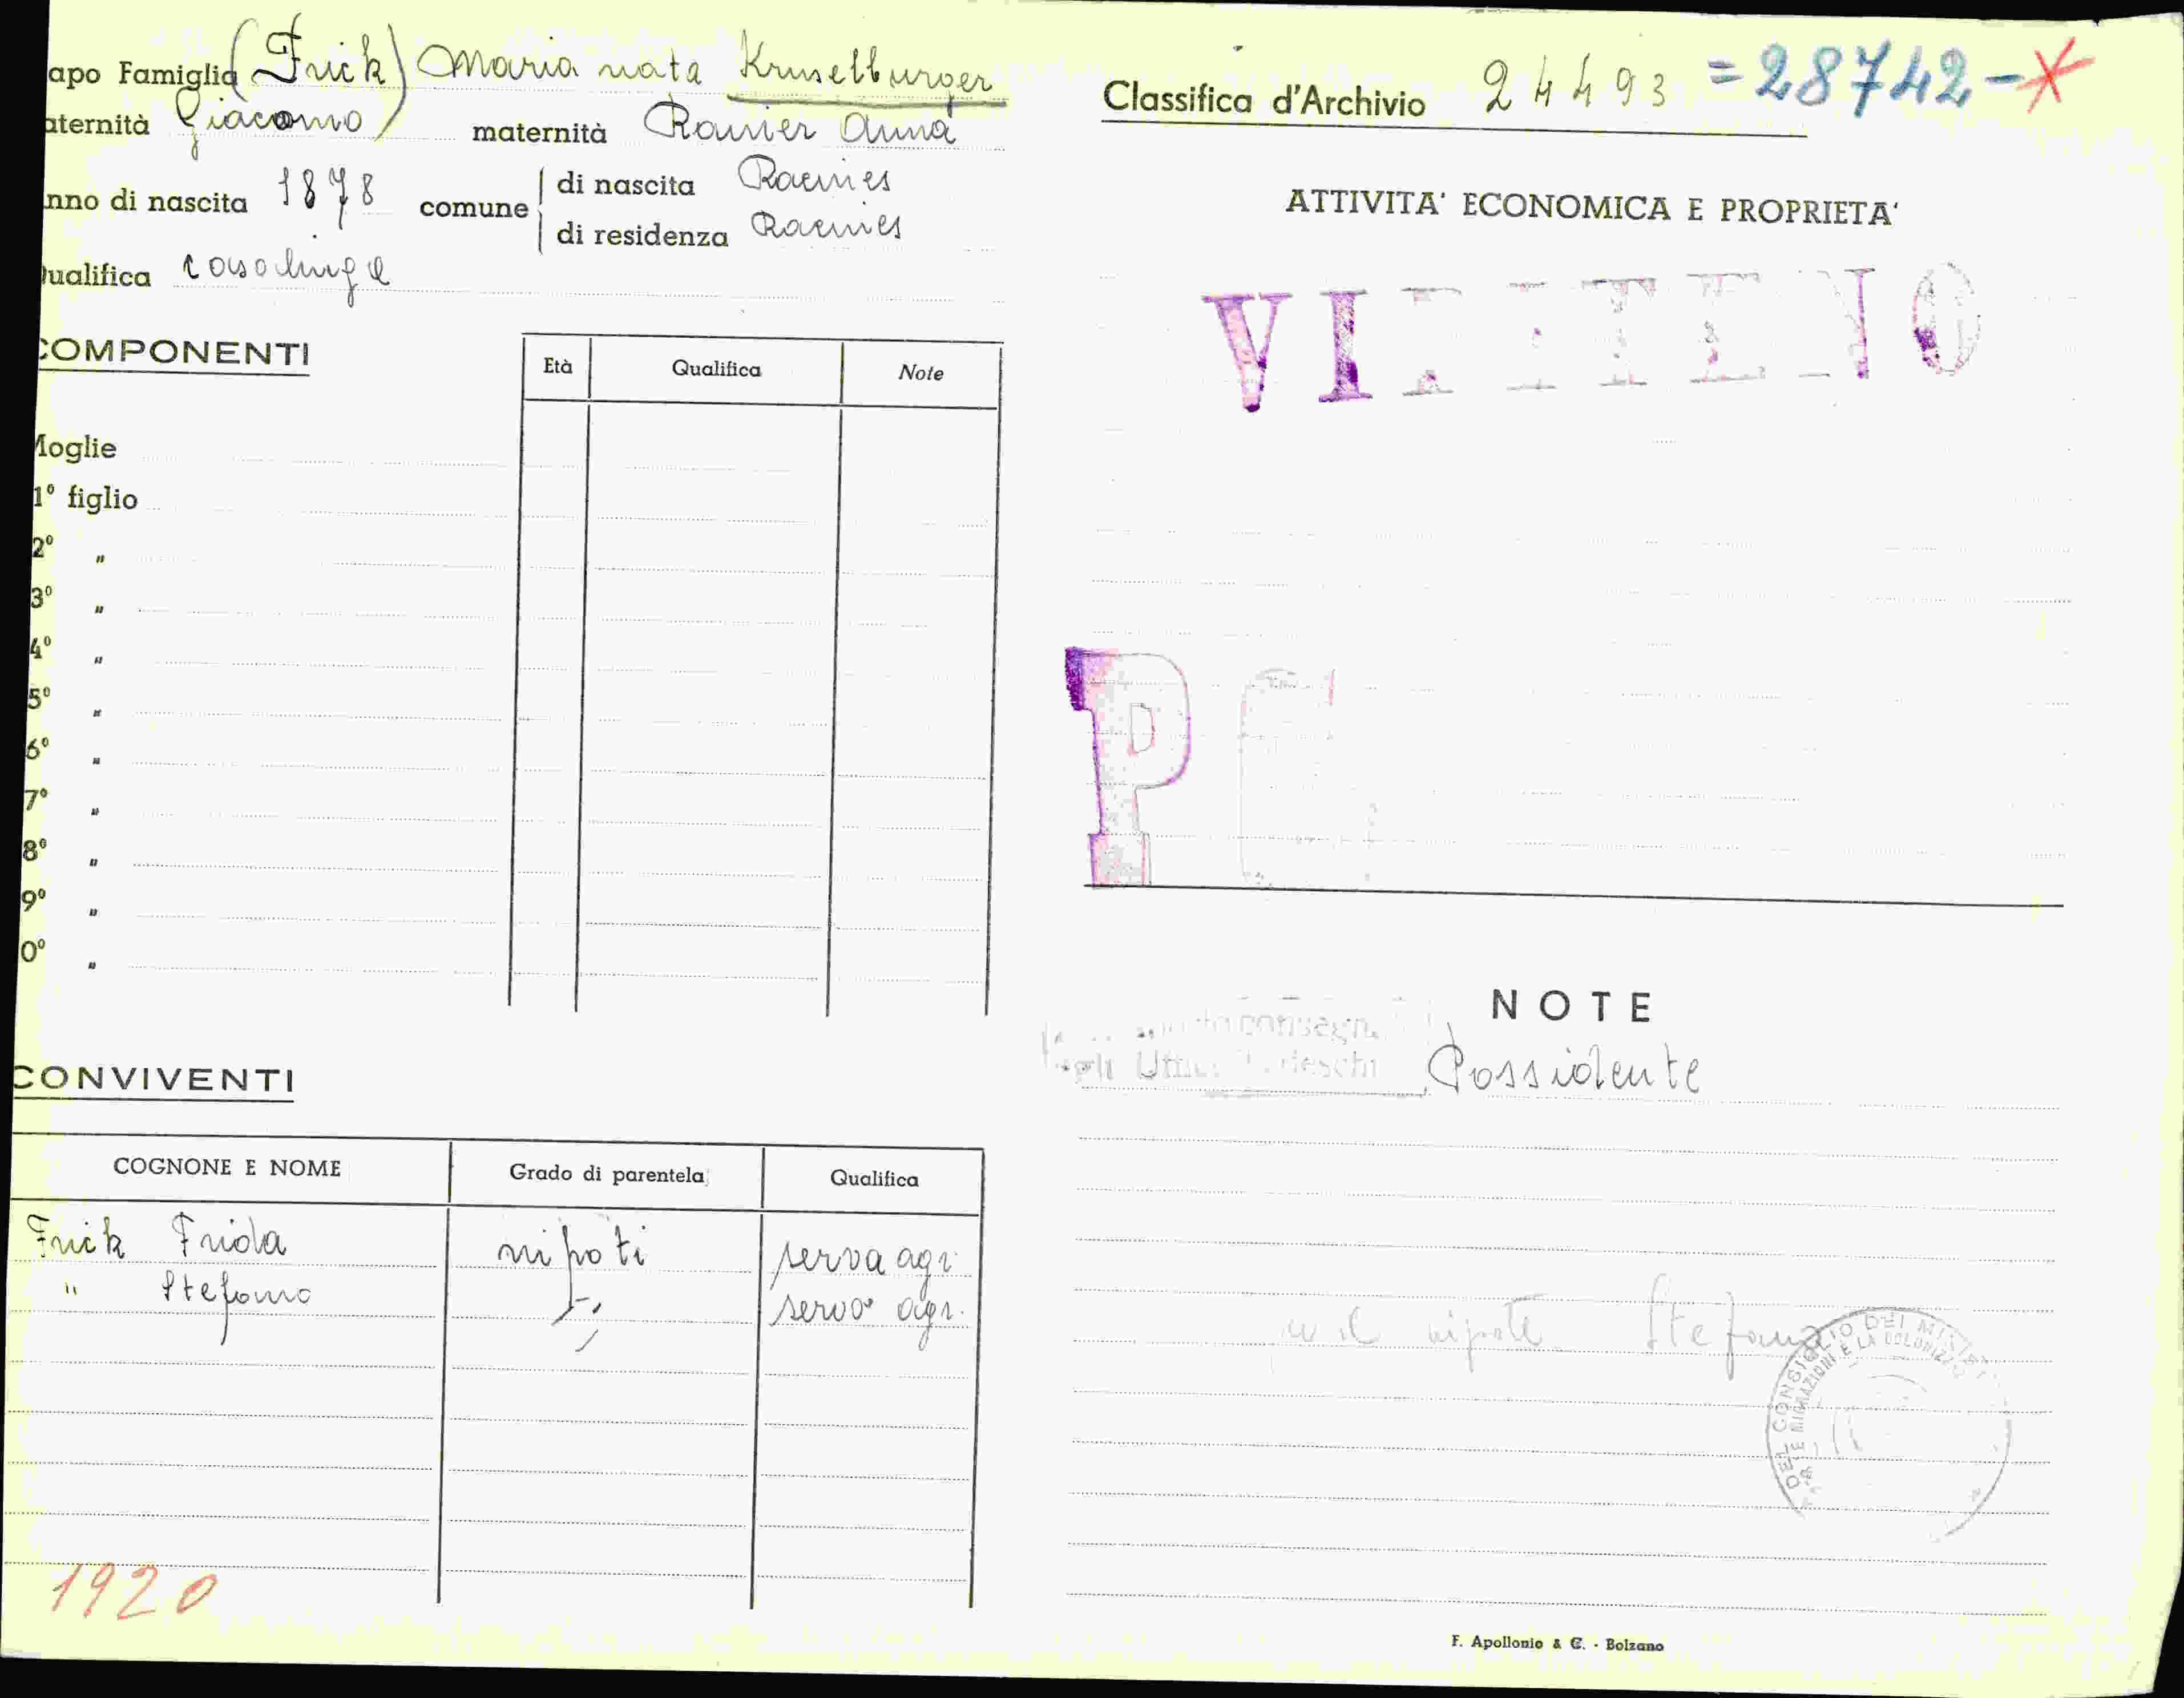 apo Famiglia (Frick) Maria nata Kruselburger
aternità Giacomo maternità Rainer Anna
nno di nascita 1878 comune di nascita Racines
di residenza Racines
ualifica casalinga
COMPONENTI
Età Qualifica Note
Moglie
1° figlio
2° "
3° "
4° "
5° "
6° "
7° "
8° "
9° "
0° "
CONVIVENTI
COGNONE E NOME Grado di parentela Qualifica
Frick Frida nipoti serva agr.
" Stefano servo agr.
1920
Classifica d'Archivio 24493 =28742-*
ATTIVITA' ECONOMICA E PROPRIETA'
VIPITENO
P
NOTE
consegn.
Possidente
il nipote Stefano
DEL CONSIGLIO DEI MINIST
E MIGRAZIONI E LA COLONIZZA
F. Apollonio & C. - Bolzano